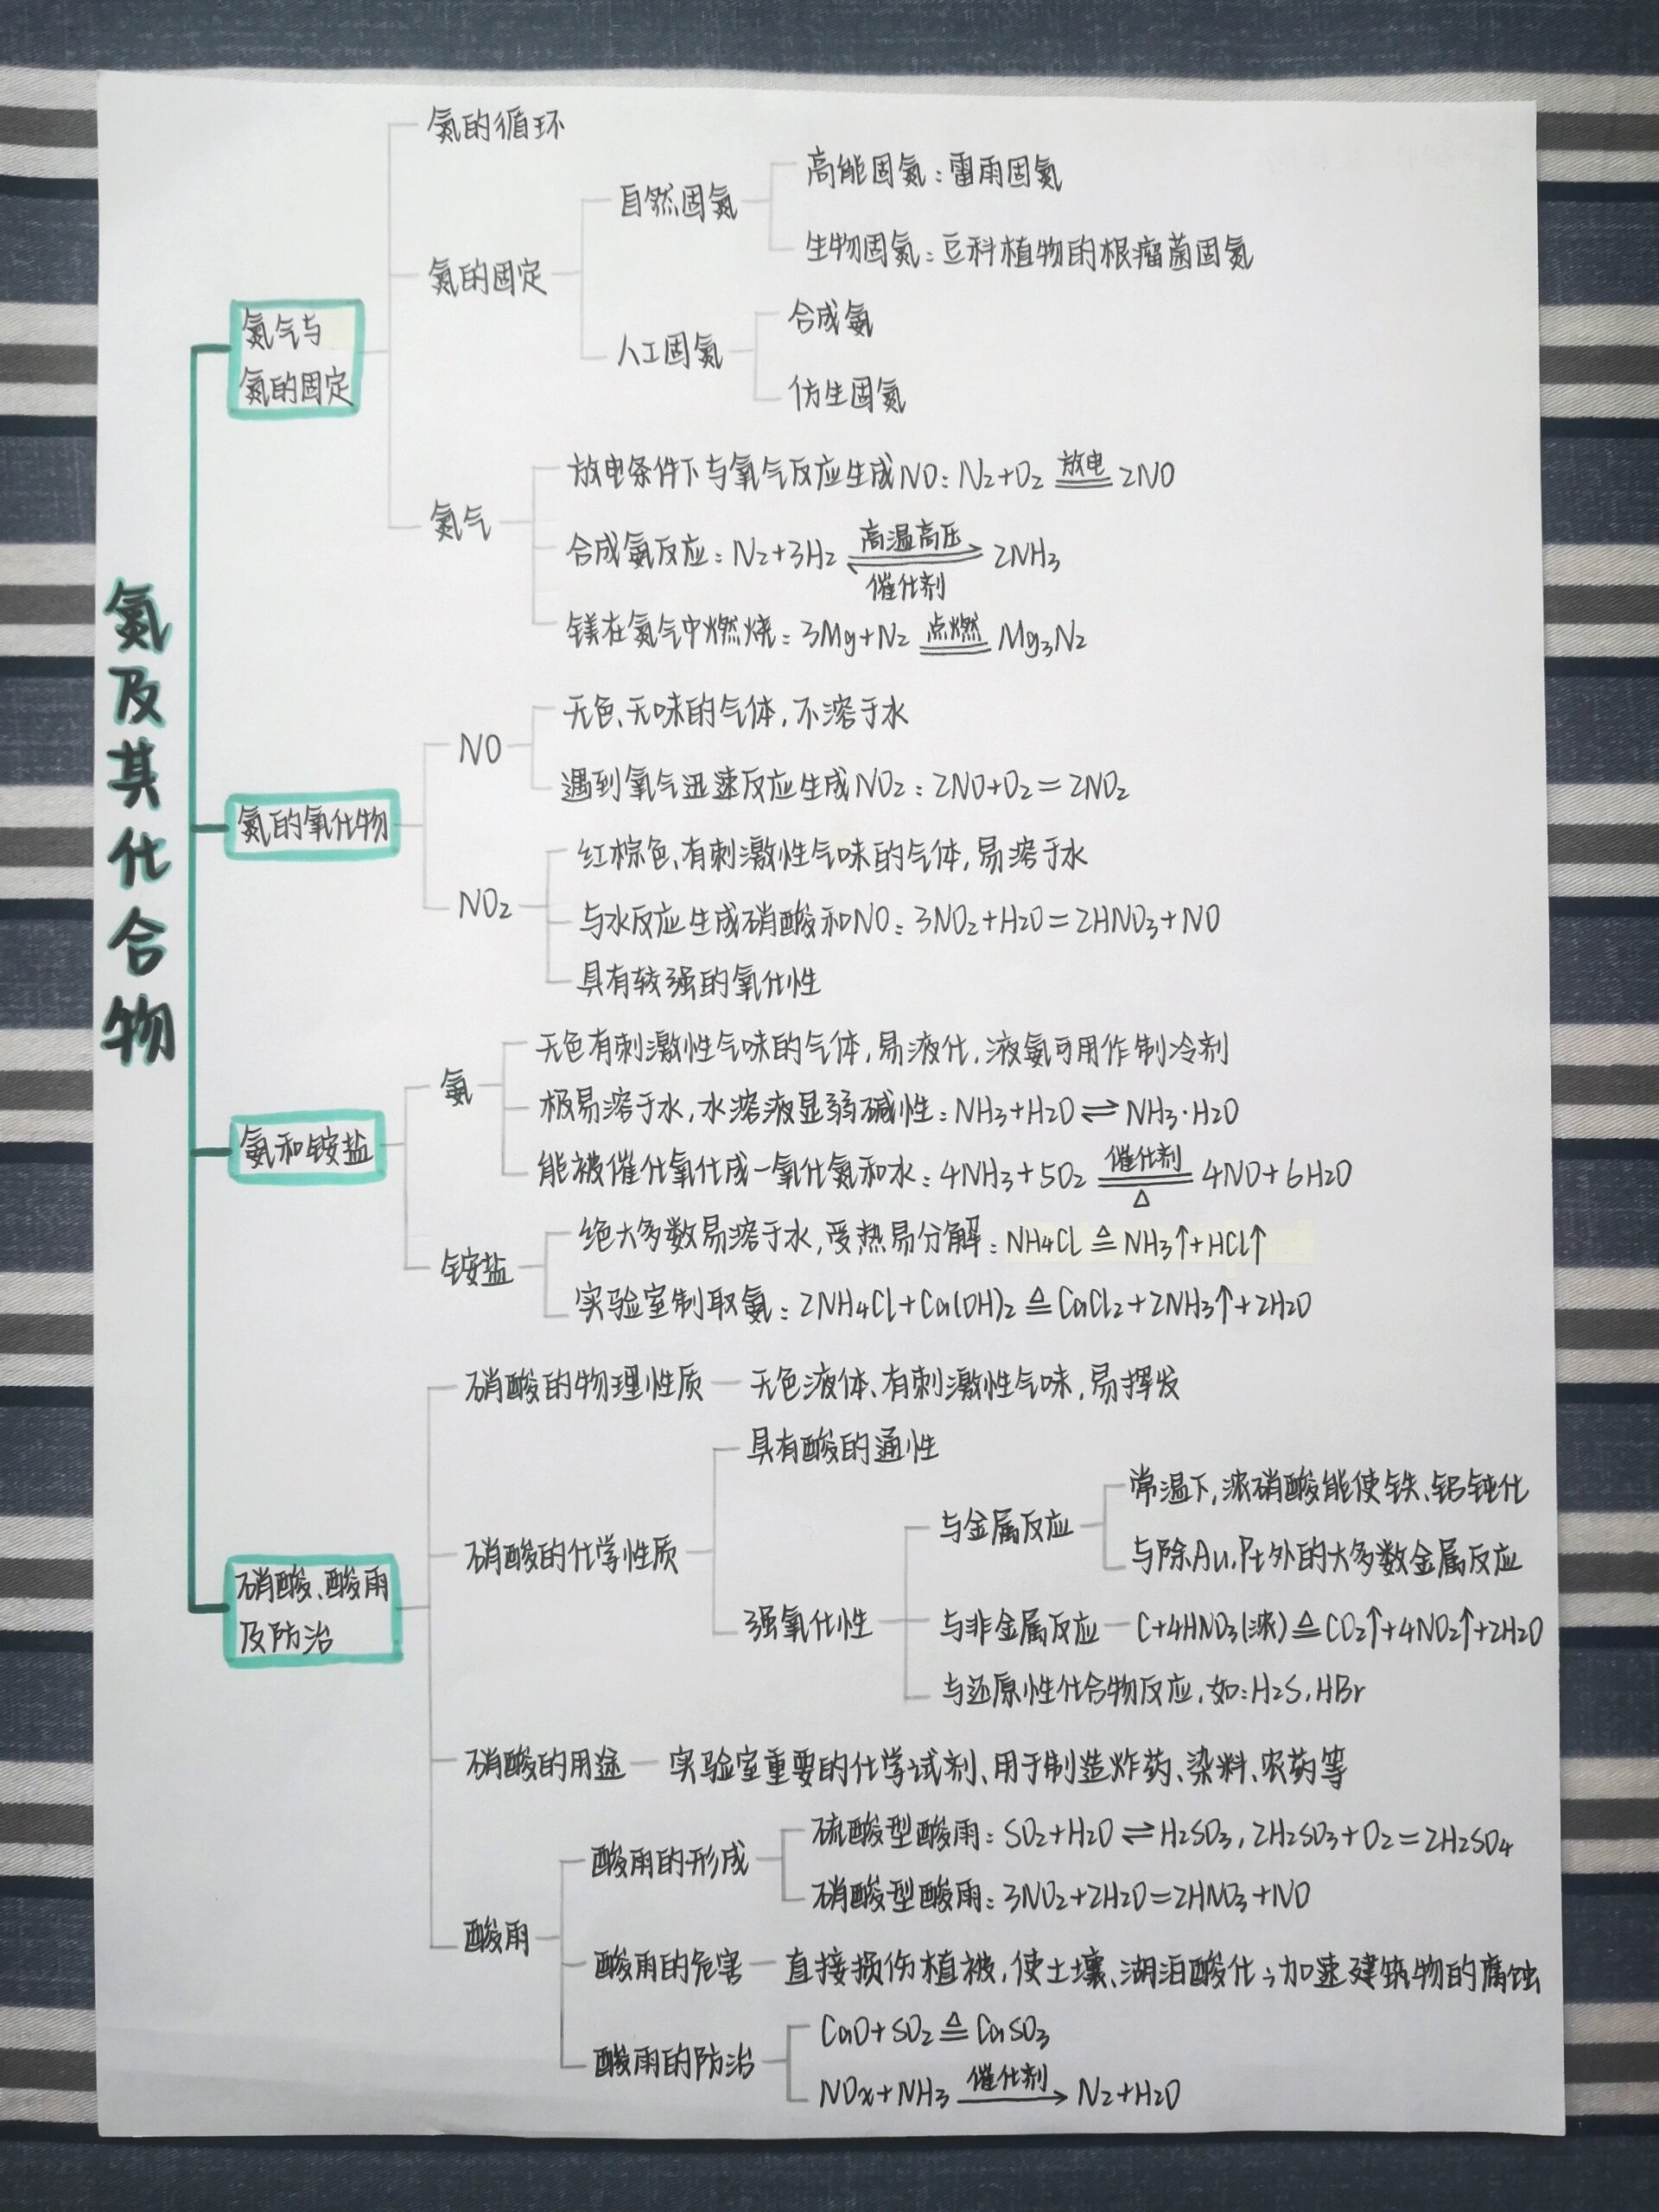 氮及其化合物
氮气与
氮的固定
氮的循环
氮的固定
自然固氮
高能固氮：雷雨固氮
生物固氮：豆科植物的根瘤菌固氮
人工固氮
合成氨
仿生固氮
氮气
放电条件下与氧气反应生成NO：N₂+O₂ 放电 2NO
合成氨反应：N₂+3H₂ 高温高压 ⇌ 催化剂 2NH₃
镁在氮气中燃烧：3Mg+N₂ 点燃 Mg₃N₂
氮的氧化物
NO
无色、无味的气体，不溶于水
遇到氧气迅速反应生成NO₂：2NO+O₂=2NO₂
NO₂
红棕色、有刺激性气味的气体，易溶于水
与水反应生成硝酸和NO：3NO₂+H₂O=2HNO₃+NO
具有较强的氧化性
氨和铵盐
氨
无色有刺激性气味的气体，易液化，液氨可用作制冷剂
极易溶于水，水溶液显弱碱性：NH₃+H₂O⇌NH₃·H₂O
能被催化氧化成一氧化氮和水：4NH₃+5O₂ 催化剂 △ 4NO+6H₂O
铵盐
绝大多数易溶于水，受热易分解：NH₄Cl ≜ NH₃↑+HCl↑
实验室制取氨：2NH₄Cl+Ca(OH)₂ ≜ CaCl₂+2NH₃↑+2H₂O
硝酸、酸雨
及防治
硝酸的物理性质
无色液体、有刺激性气味，易挥发
硝酸的化学性质
具有酸的通性
强氧化性
与金属反应
常温下，浓硝酸能使铁、铝钝化
与除Au、Pt外的大多数金属反应
与非金属反应
C+4HNO₃(浓) ≜ CO₂↑+4NO₂↑+2H₂O
与还原性化合物反应，如：H₂S，HBr
硝酸的用途
实验室重要的化学试剂、用于制造炸药、染料、农药等
酸雨
酸雨的形成
硫酸型酸雨：SO₂+H₂O⇌H₂SO₃，2H₂SO₃+O₂=2H₂SO₄
硝酸型酸雨：3NO₂+2H₂O=2HNO₃+NO
酸雨的危害
直接损伤植被，使土壤、湖泊酸化；加速建筑物的腐蚀
酸雨的防治
CaO+SO₂ ≜ CaSO₃
NOx+NH₃ 催化剂→ N₂+H₂O